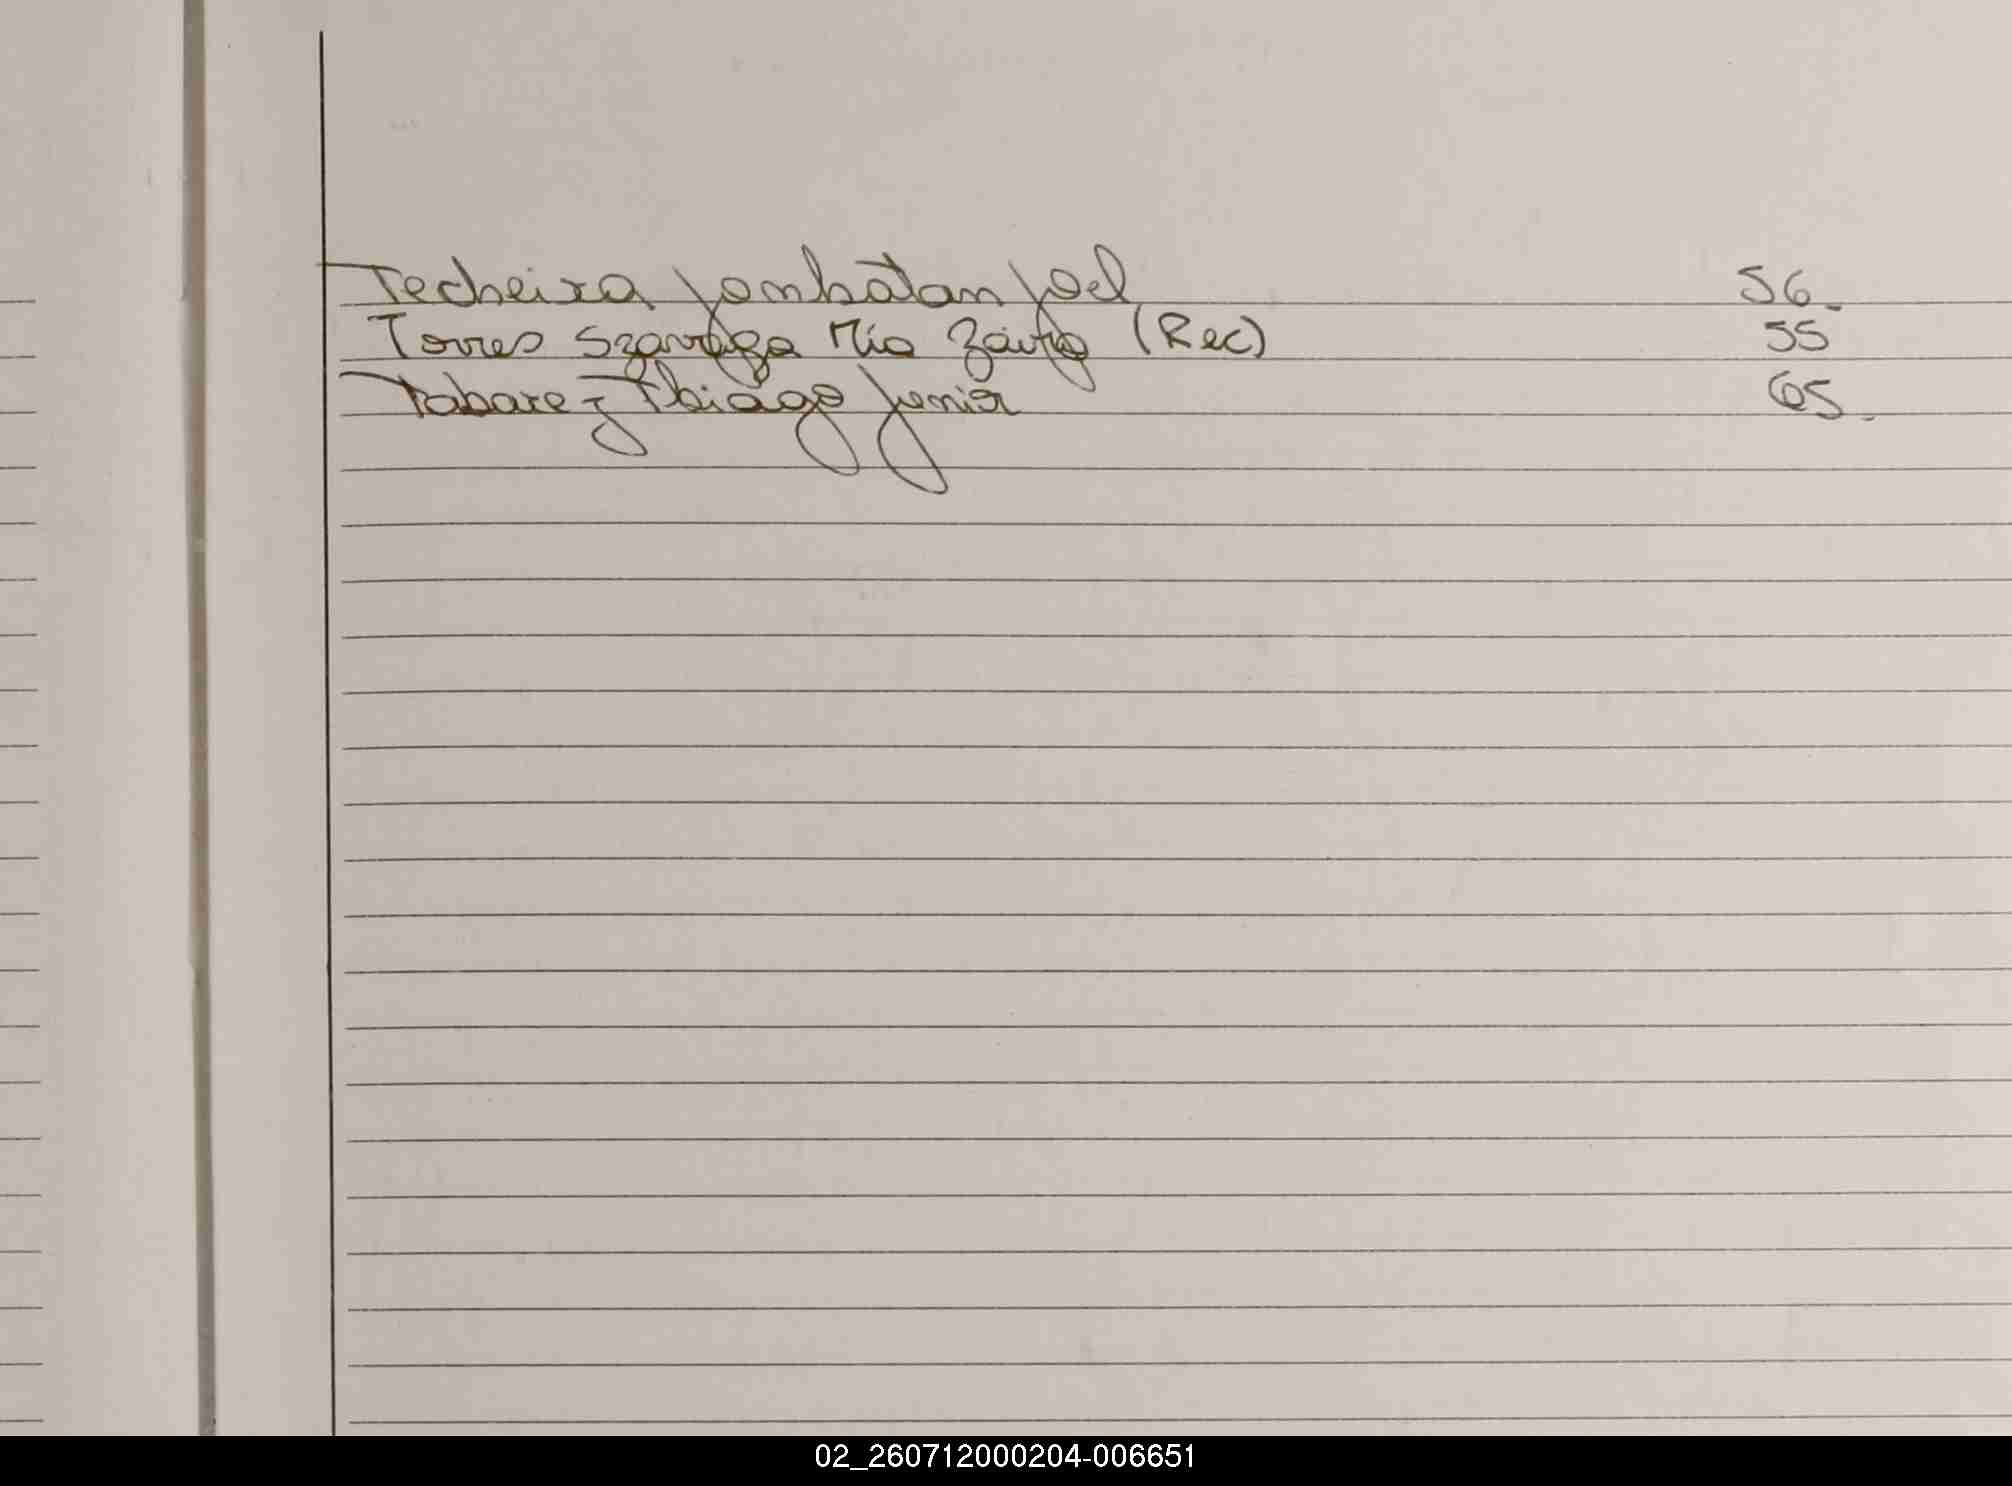 Techeira Jonhatan Joel 56
Torres Mía (Rec) 55
Tabarez Thiago Junior 65
02_260712000204-006651